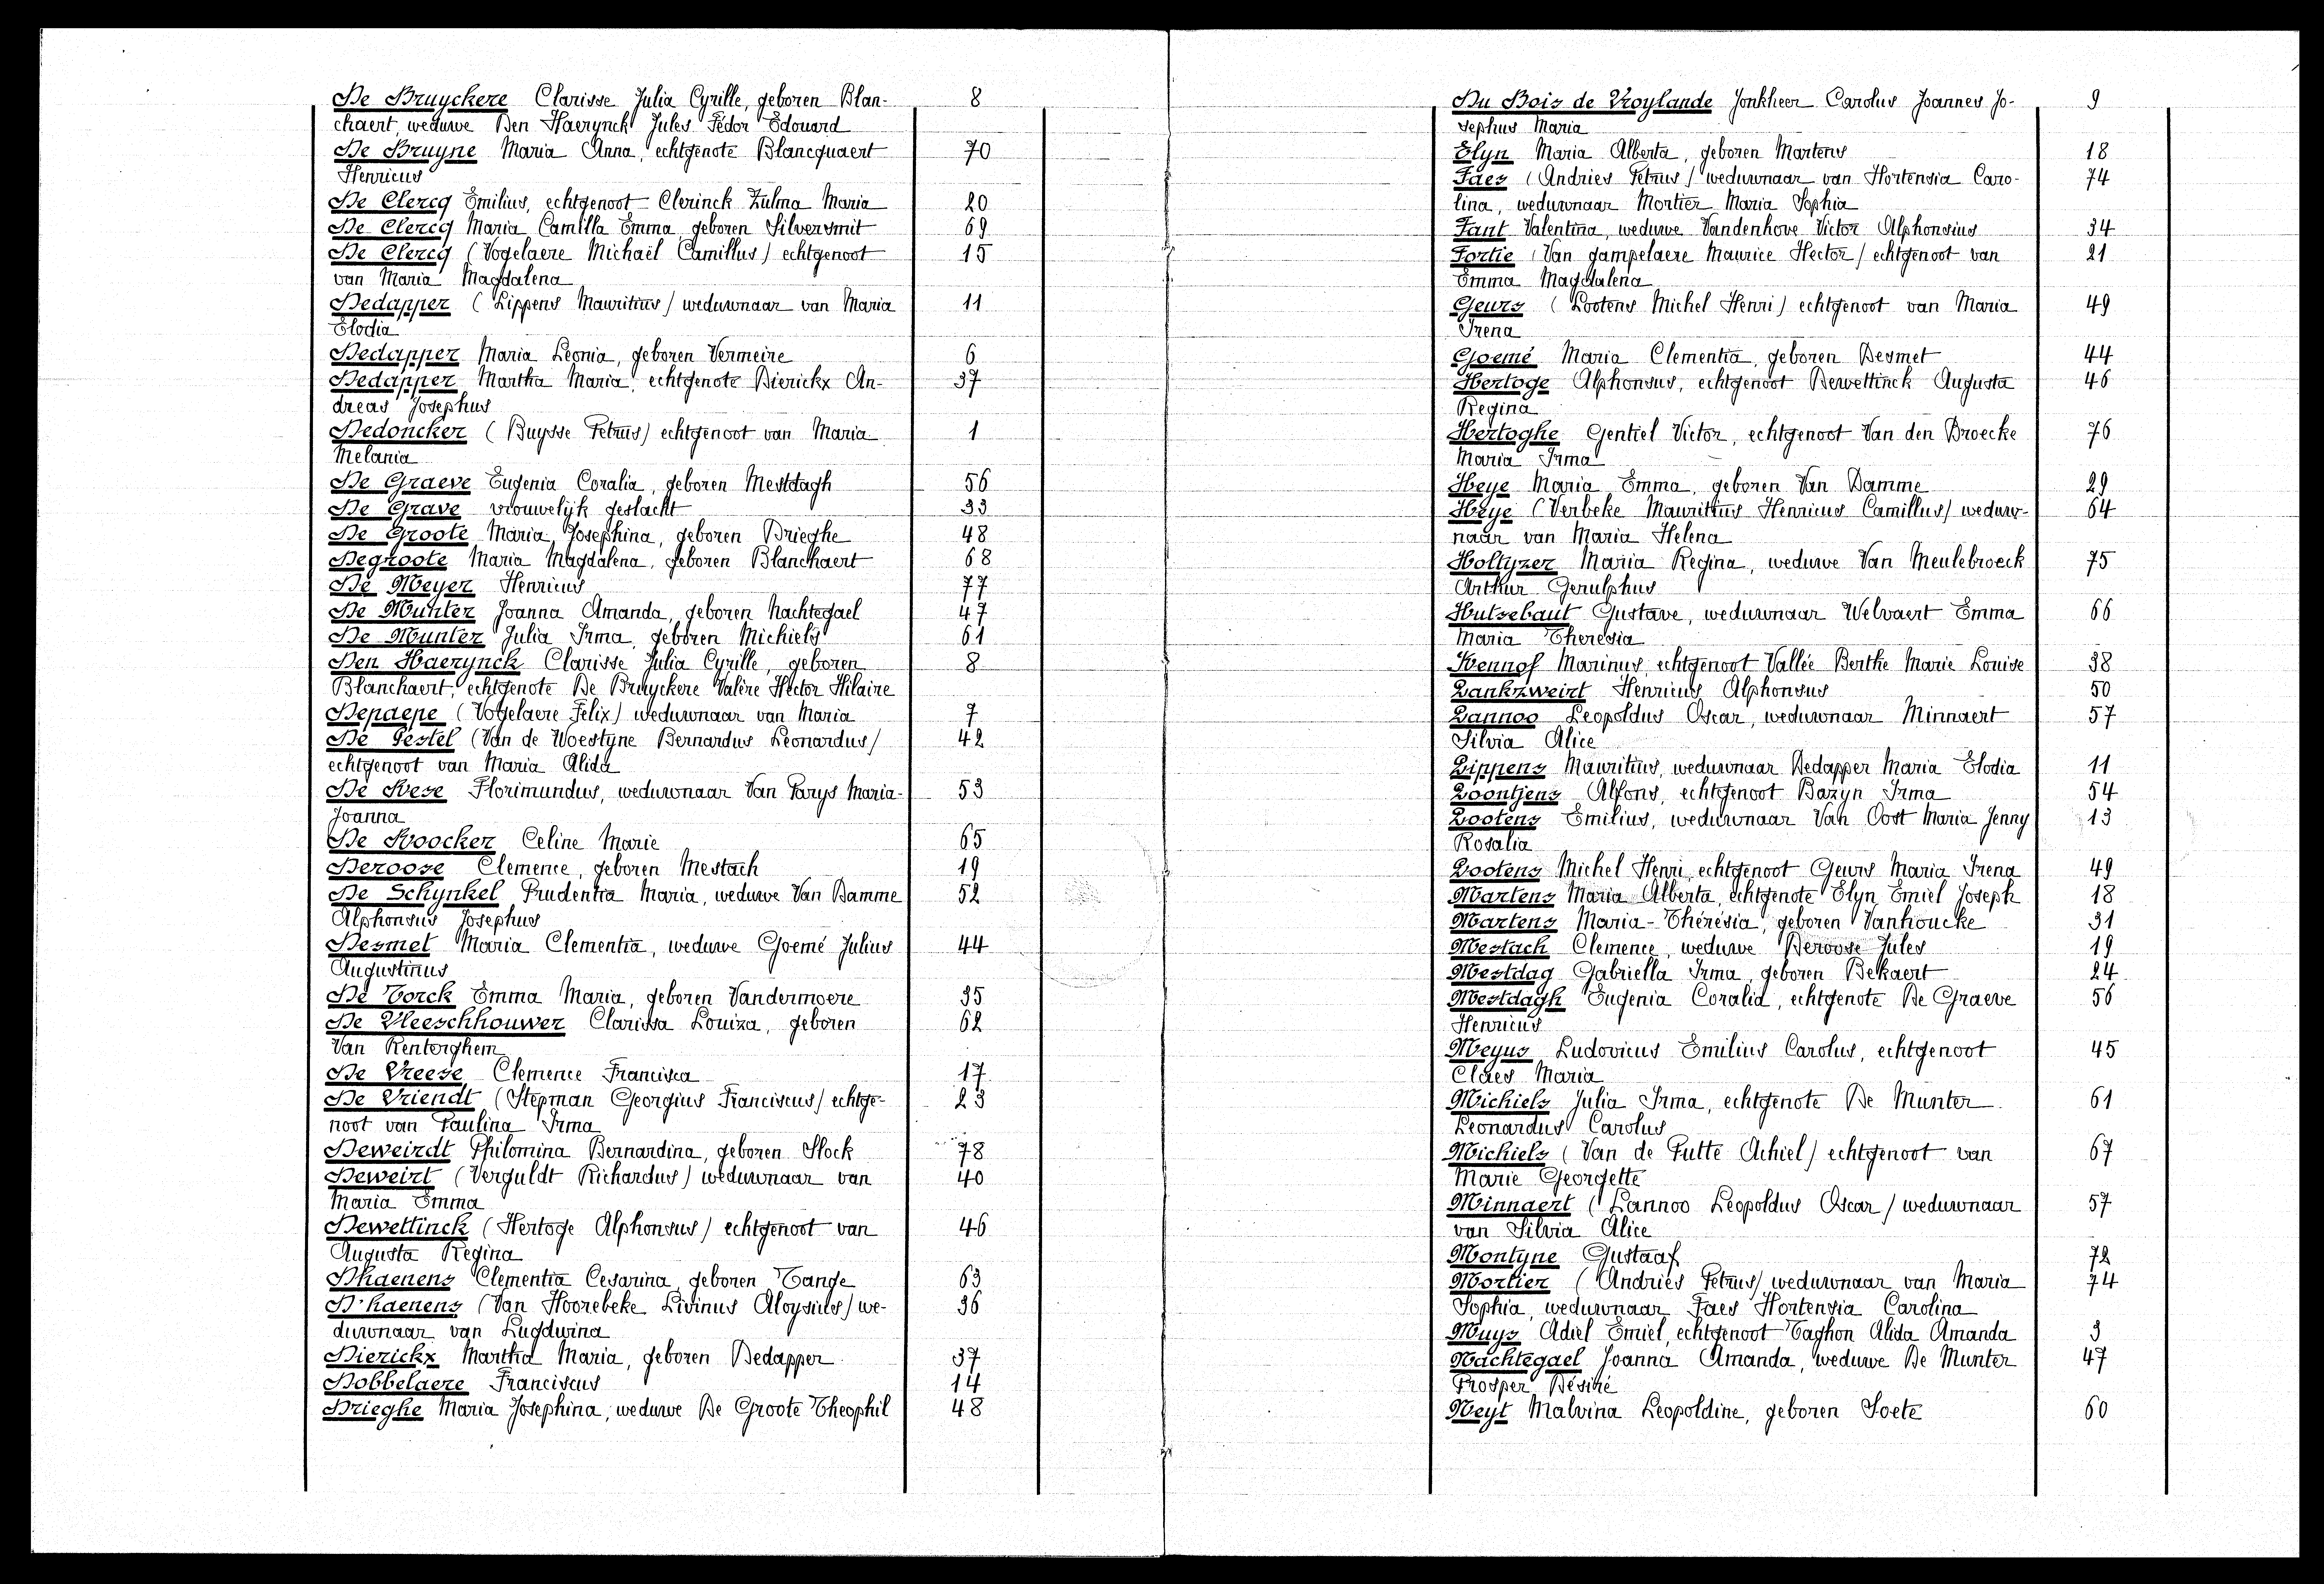 De Bruyckere Clarisse Julia Cyrille, geboren Blan- 8
chaert, weduwe Den Haerynck Jules Fédor Edouard
De Bruyne Maria Anna, echtgenote Blancquaert 70
Henricus
De Clercq Emilius, echtgenoot Clerinck Zulma Maria 20
De Clercq Maria Camilla Emma, geboren Silversmit 69
De Clercq (Vogelaere Michaël Camillus) echtgenoot 15
van Maria Magdalena
Dedapper (Lippens Mauritius) weduwnaar van Maria 11
Elodia
Dedapper Maria Leonia, geboren Vermeire 6
Dedapper Martha Maria, echtgenote Dierickx An- 37
dreas Josephus
Dedoncker (Buysse Petrus) echtgenoot van Maria 1
Melania
De Graeve Eugenia Coralia, geboren Mestdagh 56
De Grave vrouwelijk geslacht 33
De Groote Maria Josephina, geboren Drieghe 48
Degroote Maria Magdalena, geboren Blanchaert 68
De Meyer Henricus 77
De Munter Joanna Amanda, geboren Nachtegael 47
De Munter Julia Irma, geboren Michiels 61
Den Haerynck Clarisse Julia Cyrille, geboren 8
Blanchaert, echtgenote De Bruyckere Valère Hector Hilaire
Depaepe (Vogelaere Felix) weduwnaar van Maria 7
De Pestel (Van de Woestyne Bernardus Leonardus) 42
echtgenoot van Maria Alida
De Rese Florimundus, weduwnaar Van Parys Maria- 53
Joanna
De Roocker Celine Marie 65
Deroose Clemence, geboren Mestach 19
De Schynkel Prudentia Maria, weduwe Van Damme 52
Alphonsus Josephus
Desmet Maria Clementia, weduwe Goemé Julius 44
Augustinus
De Torck Emma Maria, geboren Vandermoere 35
De Vleeschhouwer Clarissa Louiza, geboren 62
Van Renterghem
De Vreese Clemence Francisca 17
De Vriendt (Stepman Georgius Franciscus) echtge- 23
noot van Paulina Irma
Deweirdt Philomina Bernardina, geboren Slock 78
Deweirt (Verguldt Richardus) weduwnaar van 40
Maria Emma
Dewettinck (Hertoge Alphonsus) echtgenoot van 46
Augusta Regina
Dhaenens Clementia Cesarina, geboren Tange 63
D'haenens (Van Hoorebeke Livinus Aloysius) we- 36
duwnaar van Lugdwina
Dierickx Martha Maria, geboren Dedapper 37
Dobbelaere Franciscus 14
Drieghe Maria Josephina, weduwe De Groote Theophil 48
Du Bois de Vroylande Jonkheer Carolus Joannes Jo- 9
sephus Maria
Elyn Maria Alberta, geboren Martens 18
Faes (Andries Petrus) weduwnaar van Hortensia Caro- 74
lina, weduwnaar Mortier Maria Sophia
Fant Valentina, weduwe Vandenhove Victor Alphonsius 34
Fortie (Van gampelaere Maurice Hector) echtgenoot van 21
Emma Magdalena
Geurs (Lootens Michel Henri) echtgenoot van Maria 49
Irena
Goemé Maria Clementia, geboren Desmet 44
Hertoge Alphonsus, echtgenoot Dewettinck Augusta 46
Regina
Hertoghe Gentiel Victor, echtgenoot Van den Broecke 76
Maria Irma
Heye Maria Emma, geboren Van Damme 29
Heye (Verbeke Mauritius Henricus Camillus) weduw- 64
naar van Maria Helena
Holtyzer Maria Regina, weduwe Van Meulebroeck 75
Arthur Gerulphus
Hutsebaut Gustave, weduwnaar Welvaert Emma 66
Maria Theresia
Kennof Marinus, echtgenoot Vallée Berthe Marie Louise 38
Lankzweirt Henricus Alphonsus 50
Lannoo Leopoldus Oscar, weduwnaar Minnaert 57
Silvia Alice
Lippens Mauritius, weduwnaar Dedapper Maria Elodia 11
Loontjens Alfons, echtgenoot Bazyn Irma 54
Lootens Emilius, weduwnaar Van Oost Maria Jenny 13
Rosalia
Lootens Michel Henri, echtgenoot Geurs Maria Irena 49
Martens Maria Alberta, echtgenote Elyn Emiel Joseph 18
Martens Maria-Thérésia, geboren Vanhoucke 31
Mestach Clemence, weduwe Deroose Jules 19
Mestdag Gabriella Irma, geboren Bekaert 24
Mestdagh Eugenia Coralia, echtgenote De Graeve 56
Henricus
Meyus Ludovicus Emilius Carolus, echtgenoot 45
Claes Maria
Michiels Julia Irma, echtgenote De Munter 61
Leonardus Carolus
Michiels (Van de Putte Achiel) echtgenoot van 67
Marie Georgette
Minnaert (Lannoo Leopoldus Oscar) weduwnaar 57
van Silvia Alice
Montyne Gustaaf 72
Mortier (Andries Petrus) weduwnaar van Maria 74
Sophia, weduwnaar Faes Hortensia Carolina
Muys Adiel Emiel, echtgenoot Taghon Alida Amanda 3
Nachtegael Joanna Amanda, weduwe De Munter 47
Prosper Désiré
Neyt Malvina Leopoldine, geboren Soete 60